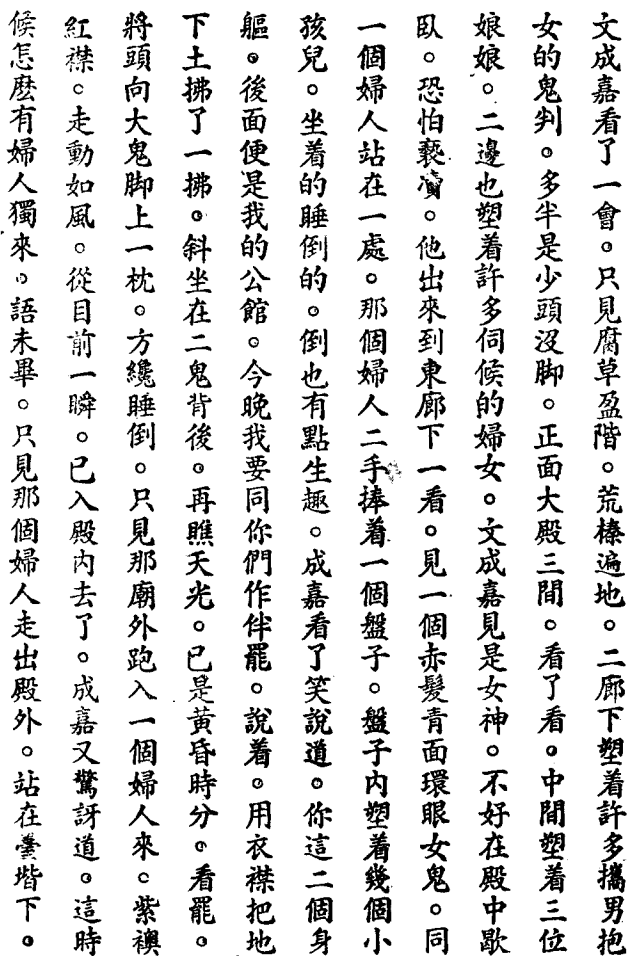 文成嘉看了一會。只見腐草盈階。荒榛遍地。二廊下塑着許多攜男抱
女的鬼判。多半是少頭沒脚。正面大殿三間。看了看。中間塑着三位
娘娘。二邊也塑着許多伺候的婦女。文成嘉見是女神。不好在殿中歇
臥。恐怕褻瀆。他出來到東廊下一看。見一個赤髮青面環眼女鬼。同
一個婦人站在一處。那個婦人二手捧着一個盤子。盤子內塑着幾個小
孩兒。坐着的睡倒的。倒也有點生趣。成嘉看了笑說道。你這二個身
軀。後面便是我的公館。今晚我要同你們作伴罷。說着。用衣襟把地
下土拂了一拂。斜坐在二鬼背後。再瞧天光。已是黃昏時分。看罷。
將頭向大鬼脚上一枕。方纔睡倒。只見那廟外跑入一個婦人來。紫襖
紅襟。走動如風。從目前一瞬。已入殿內去了。成嘉又驚訝道。這時
候怎麽有婦人獨來。語未畢。只見那個婦人走出殿外。站在臺堦下。